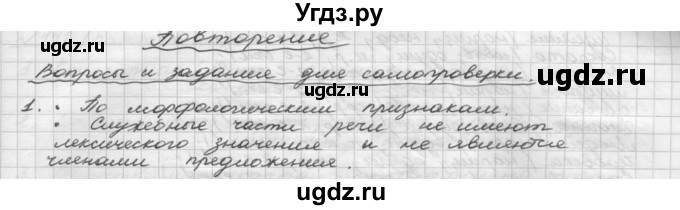 Угдз.ру
Повторение
Вопросы и задания для самопроверки.
1. • По морфологическим признакам.
• Служебные части речи не имеют
лексического значения и не являются
членами предложения.
ugdz.ru
ugdz.ru
ugdz.ru
ugdz.ru
ugdz.ru
ugdz.ru
ugdz.ru